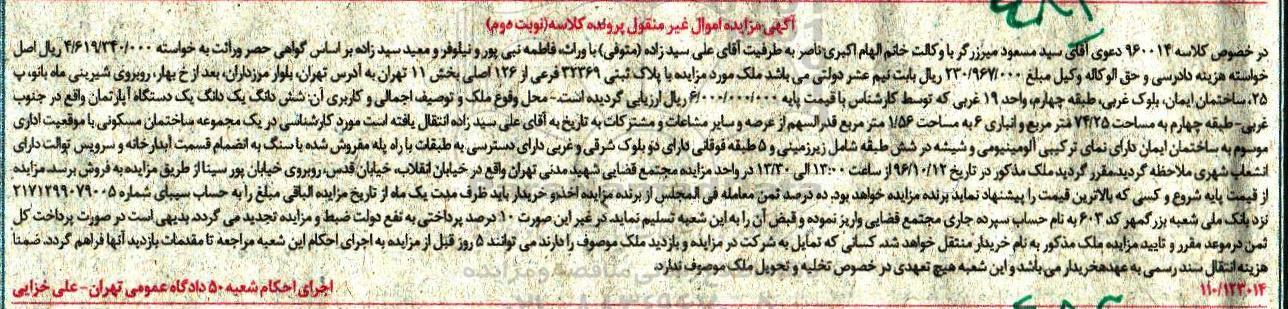 آگهی مزایده اموال غیر منقول پرونده کلاسه(نوبت دوم)
در خصوص کلاسه ۹۶۰۰۱۴ دعوی آقای سید مسعود میرزرگر با وکالت خانم الهام اکبری ناصر به طرفیت آقای علی سید زاده (متوفی) با وراث، فاطمه نبی پور و نیلوفر و معید سید زاده بر اساس گواهی حصر وراثت به خواسته ۴/۶۱۹/۳۴۰/۰۰۰ ریال اصل
خواسته هزینه دادرسی و حق الوکاله وکیل مبلغ ۲۳۰/۹۶۷/۰۰۰ ریال بابت نیم عشر دولتی می باشد ملک مورد مزایده با پلاک ثبتی ۳۲۳۶۹ فرعی از ۱۲۶ اصلی بخش ۱۱ تهران به آدرس تهران، بلوار مرزداران، بعد از خ بهار، روبروی شیرینی ماه بانو، پ
۲۵، ساختمان ایمان، بلوک غربی، طبقه چهارم، واحد ۱۹ غربی که توسط کارشناس با قیمت پایه ۶/۰۰۰/۰۰۰/۰۰۰ ریال ارزیابی گردیده است.- محل وقوع ملک و توصیف اجمالی و کاربری آن: شش دانگ یک دانگ یک دستگاه آپارتمان واقع در جنوب
غربی- طبقه چهارم به مساحت ۷۴/۲۵ متر مربع و انباری ۶ به مساحت ۱/۵۶ متر مربع قدرالسهم از عرصه و سایر مشاعات و مشترکات به تاریخ به آقای علی سید زاده انتقال یافته است مورد کارشناسی در یک مجموعه ساختمان مسکونی با موقعیت اداری
موسوم به ساختمان ایمان دارای نمای ترکیبی آلومینیومی و شیشه در شش طبقه شامل زیرزمینی و ۵ طبقه فوقانی دارای دو بلوک شرقی و غربی دارای دسترسی به طبقات با راه پله مفروش شده با سنگ به انضمام قسمت آبدارخانه و سرویس توالت دارای
انشعاب شهری ملاحظه گردید.مقرر گردید ملک مذکور در تاریخ ۹۶/۱۰/۱۲ از ساعت ۱۳:۰۰ الی ۱۳/۳۰ در واحد مزایده مجتمع قضایی شهید مدنی تهران واقع در خیابان انقلاب، خیابان قدس، روبروی خیابان پور سینا از طریق مزایده به فروش برسد. مزایده
از قیمت پایه شروع و کسی که بالاترین قیمت را پیشنهاد نماید برنده مزایده خواهد بود. ده درصد ثمن معامله فی المجلس از برنده مزایده اخذ و خریدار باید ظرف مدت یک ماه از تاریخ مزایده الباقی مبلغ را به حساب سیبای شماره ۲۱۷۱۲۹۹۰۷۹۰۰۵
نزد بانک ملی شعبه بزرگمهر کد ۶۰۳ به نام حساب سپرده جاری مجتمع قضایی واریز نموده و قبض آن را به این شعبه تسلیم نماید. در غیر این صورت ۱۰ درصد پرداختی به نفع دولت ضبط و مزایده تجدید می گردد. بدیهی است در صورت پرداخت کل
ثمن درموعد مقرر و تایید مزایده ملک مذکور به نام خریدار منتقل خواهد شد. کسانی که تمایل به شرکت در مزایده و بازدید ملک موصوف را دارند می توانند ۵ روز قبل از مزایده به اجرای احکام این شعبه مراجعه تا مقدمات بازدید آنها فراهم گردد. ضمنا
هزینه انتقال سند رسمی به عهدهخریدار می باشد و این شعبه هیچ تعهدی در خصوص تخلیه و تحویل ملک موصوف ندارد.
۱۱۰/۱۲۳۰۱۴
اجرای احکام شعبه ۵۰ دادگاه عمومی تهران- علی خزایی